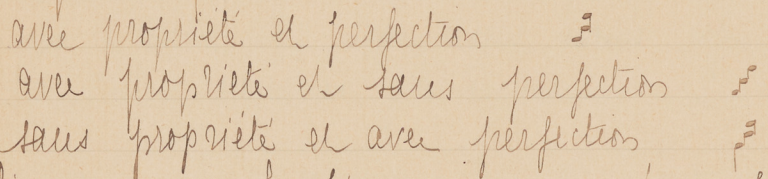 avec propriété et perfection
avec propriété et sans perfection
sans propriété et avec perfection